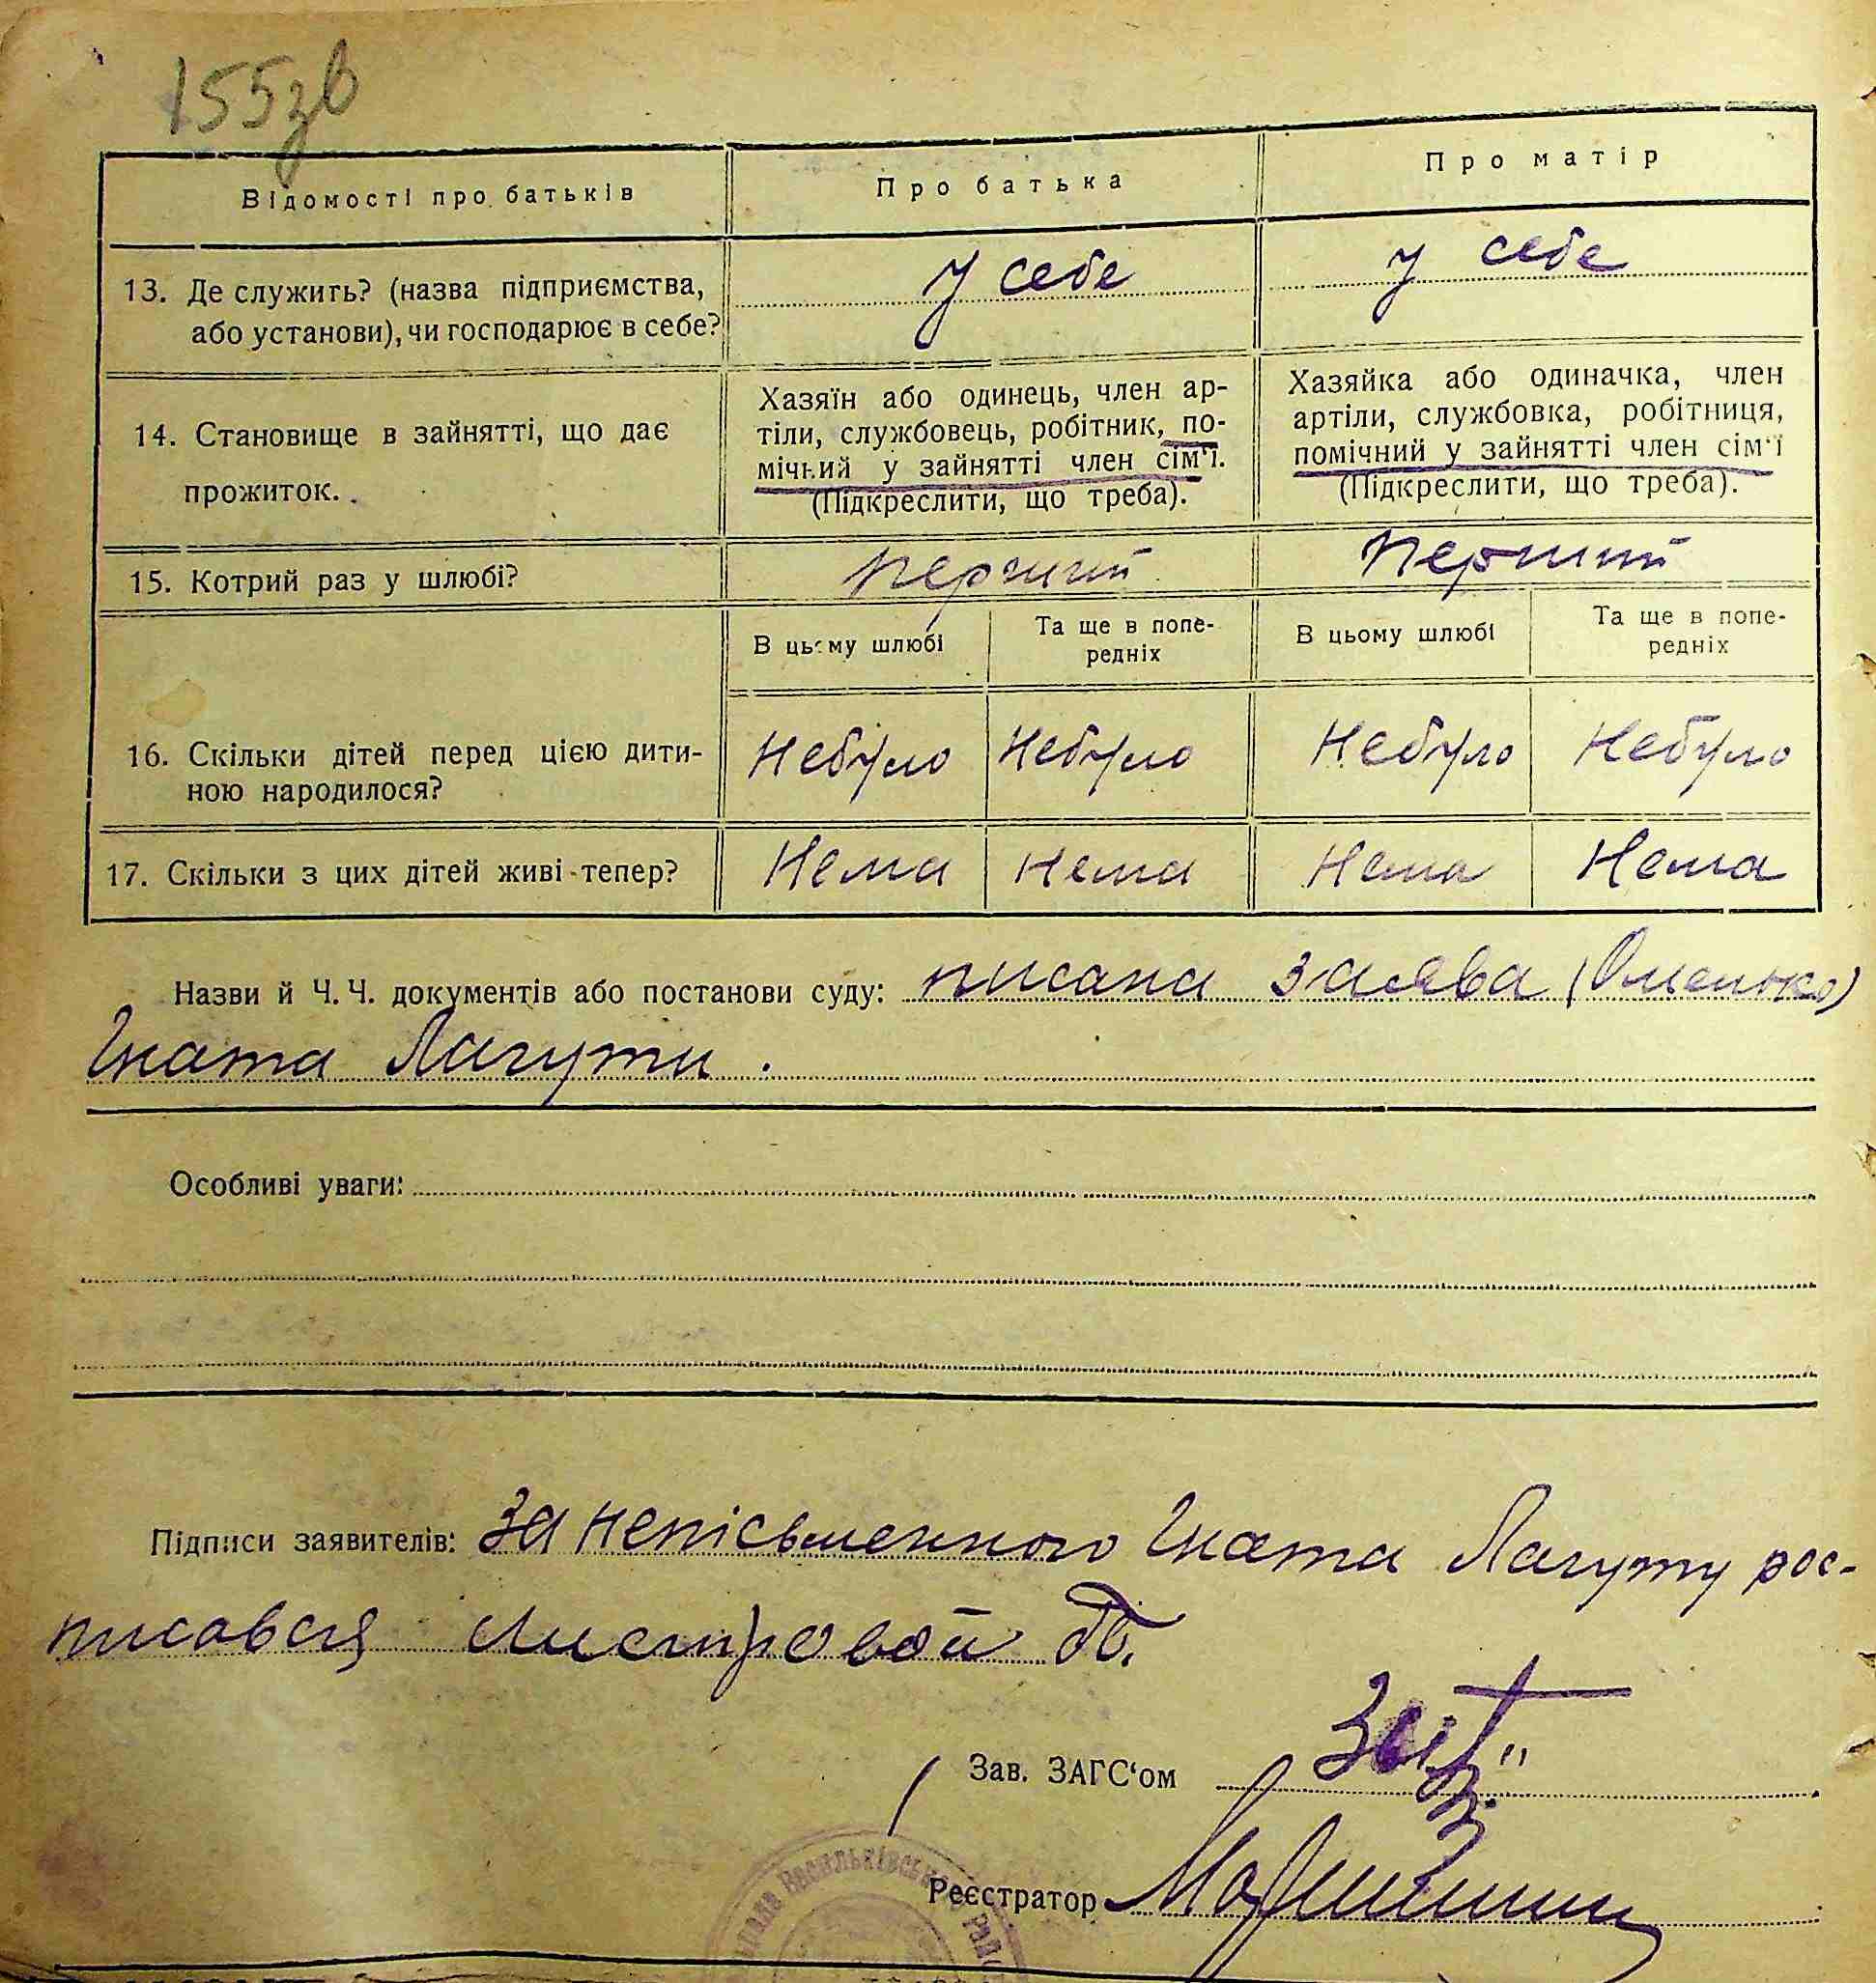 155зв
Відомості про батьків
Про батька
Про матір
13. Де служить? (назва підприємства,
або установи), чи господарює в себе?
У себе
У себе
14. Становище в зайнятті, що дає
прожиток.
Хазяїн або одинець, член ар-
тіли, службовець, робітник, по-
мічний у зайнятті член сім'ї.
(Підкреслити, що треба).
Хазяйка або одиначка, член
артіли, службовка, робітниця,
помічний у зайнятті член сім'ї
(Підкреслити, що треба).
15. Котрий раз у шлюбі?
Перший
Перший
В цьому шлюбі
Та ще в попе-
редніх
В цьому шлюбі
Та ще в попе-
редніх
16. Скільки дітей перед цією дити-
ною народилося?
Небуло
Небуло
Небуло
Небуло
17. Скільки з цих дітей живі тепер?
Нема
Нема
Нема
Нема
Назви й Ч. Ч. документів або постанови суду: писана заява (Омелько)
Гната Лагути.
Особливі уваги:
Підписи заявителів: За непісьменного Гната Лагуту рос-
писався Листровой
Зав. ЗАГС'ом
Реєстратор
Васильківської Рад